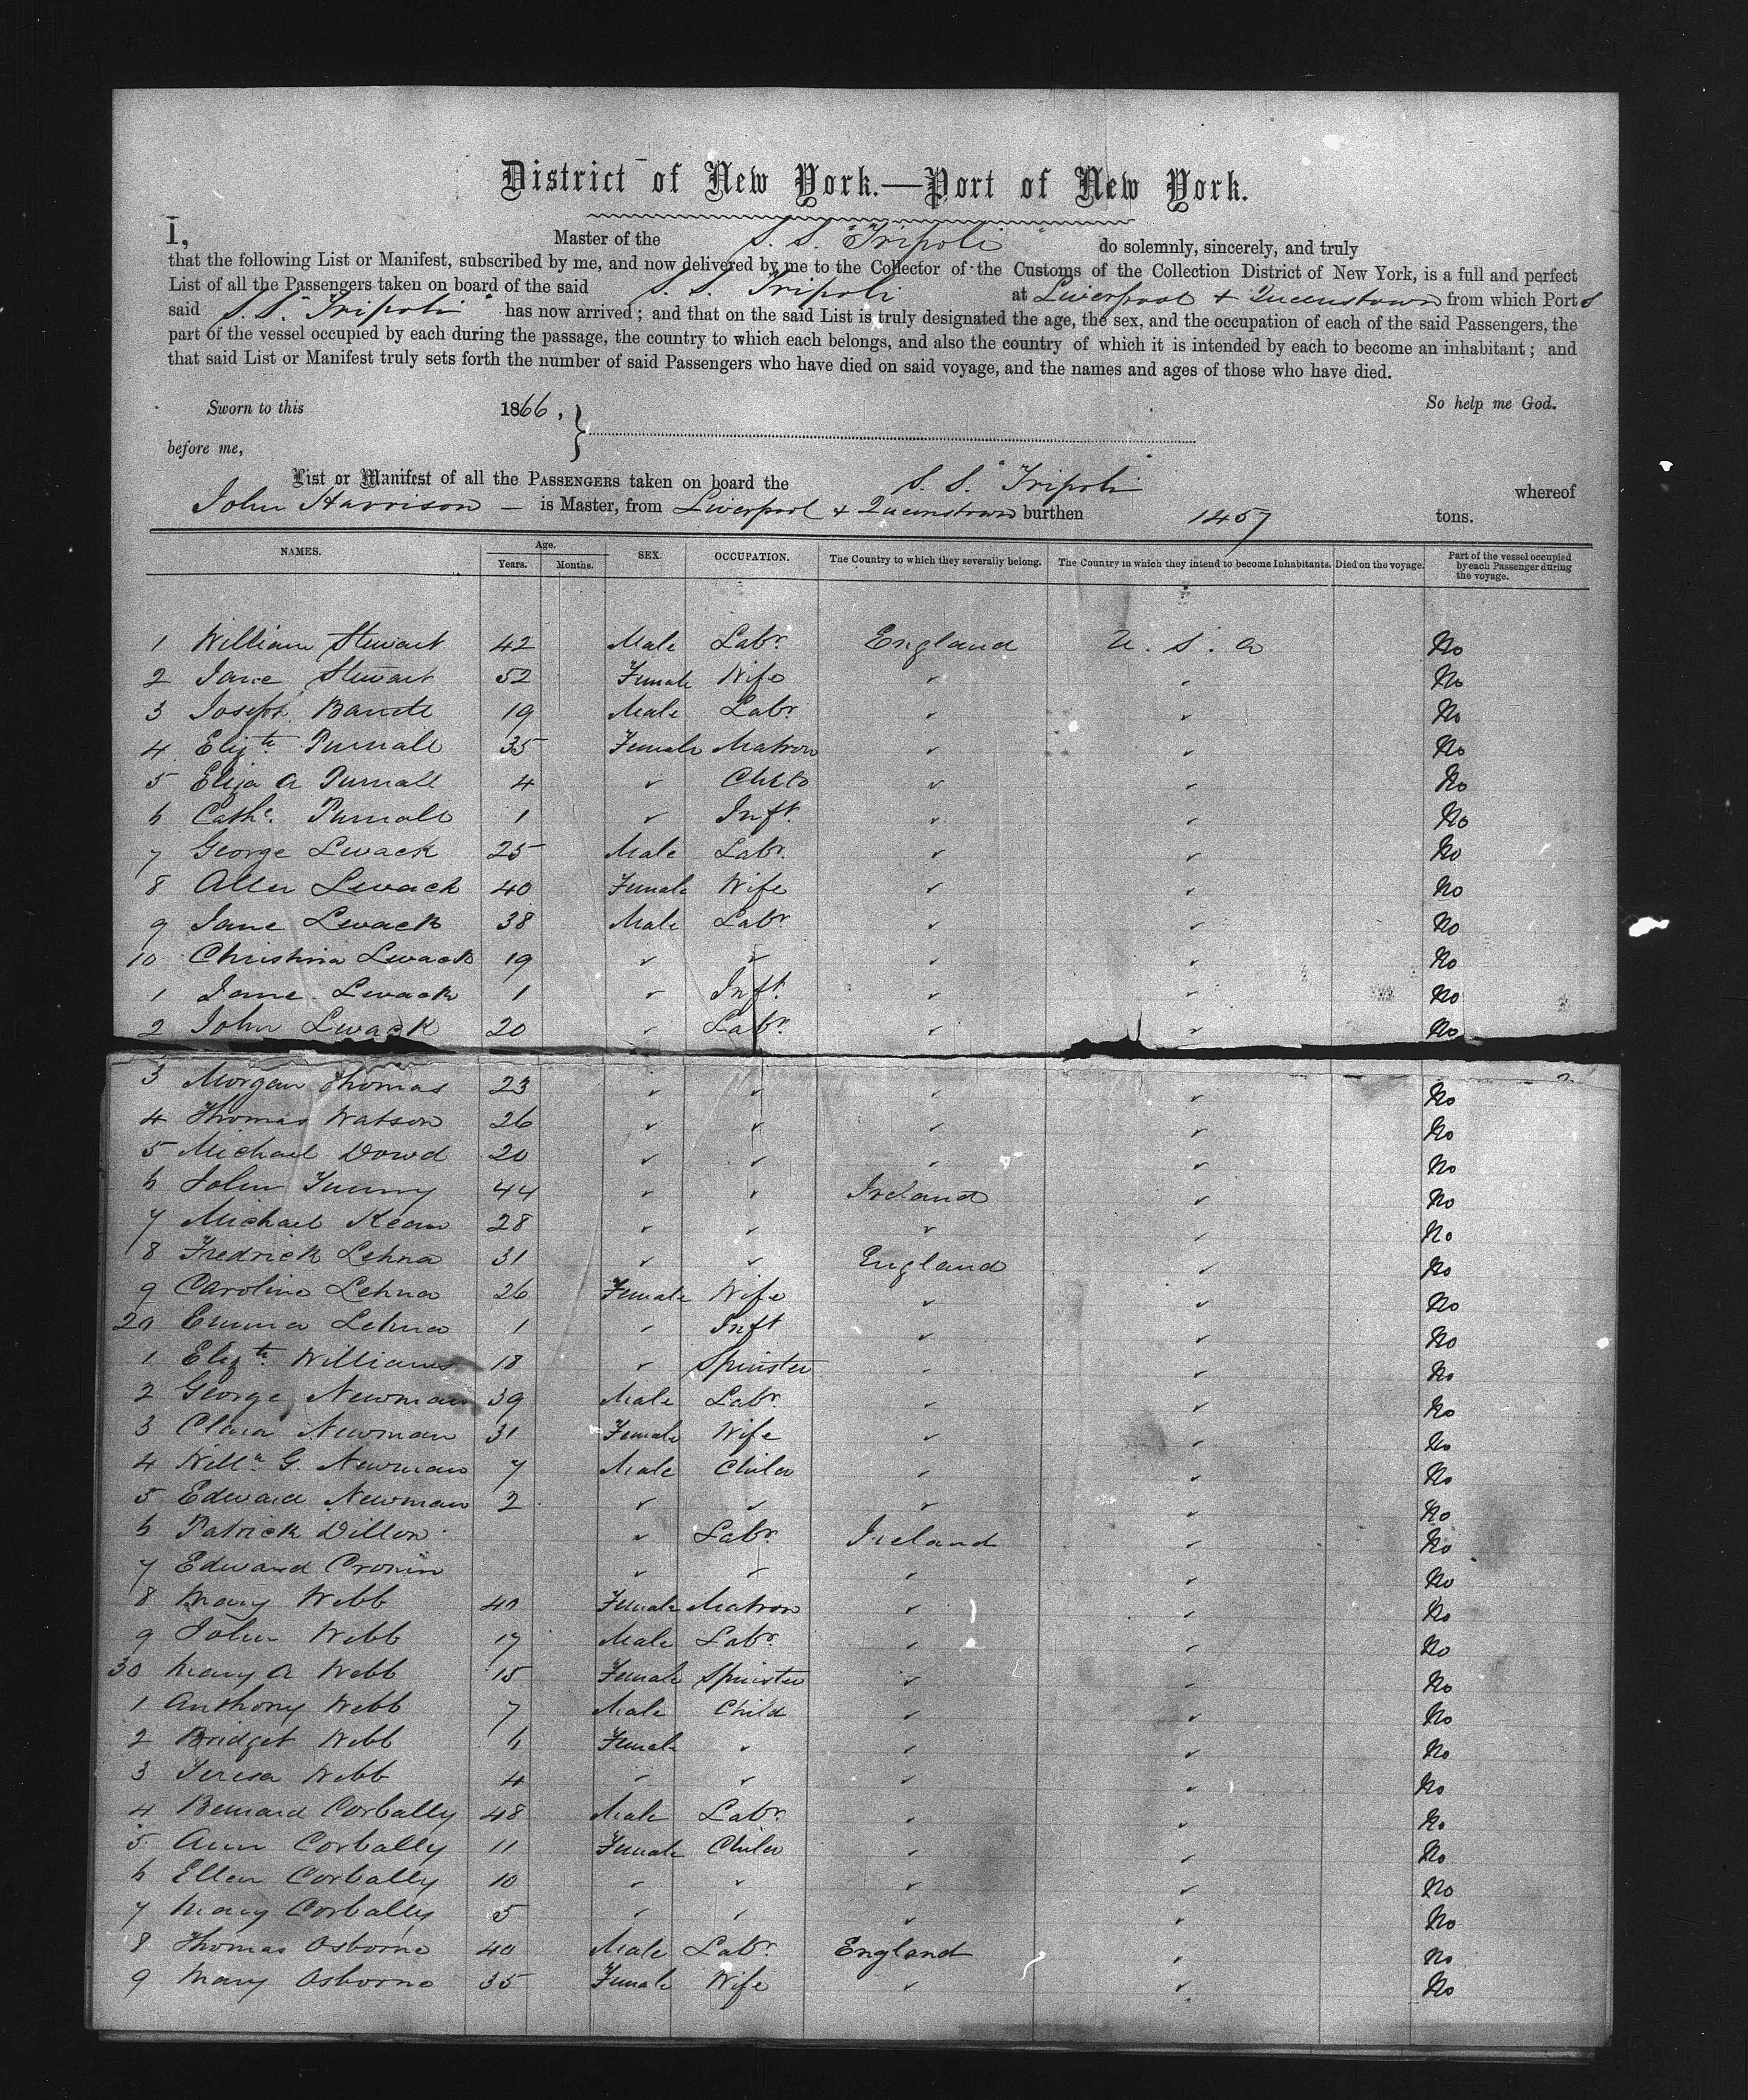 District of New York.—Port of New York.
I, Master of the S. S. "Tripoli" do solemnly, sincerely, and truly
that the following List or Manifest, subscribed by me, and now delivered by me to the Collector of the Customs of the Collection District of New York, is a full and perfect
List of all the Passengers taken on board of the said S. S. Tripoli at Liverpool + Queenstown from which Ports
said S. S. "Tripoli" has now arrived; and that on the said List is truly designated the age, the sex, and the occupation of each of the said Passengers, the
part of the vessel occupied by each during the passage, the country to which each belongs, and also the country of which it is intended by each to become an inhabitant; and
that said List or Manifest truly sets forth the number of said Passengers who have died on said voyage, and the names and ages of those who have died.
Sworn to this 1866, So help me God.
before me,
List or Manifest of all the PASSENGERS taken on board the S. S. "Tripoli" whereof
John Harrison — is Master, from Liverpool + Queenstown burthen 1457 tons.
NAMES. Age. Years. Months. SEX. OCCUPATION. The Country to which they severally belong. The Country in which they intend to become Inhabitants. Died on the voyage. Part of the vessel occupied by each Passenger during the voyage.
1 William Stewart 42 Male Labr. England U. S. a No
2 Jane Stewart 52 Female Wife ✓ ✓ No
3 Joseph 19 Male Labr. ✓ ✓ No
4 Elizth Purnall 35 Female Matron ✓ ✓ No
5 Eliza A Purnall 4 ✓ Child ✓ ✓ No
6 Cathe. Purnall 1 ✓ Inft. ✓ ✓ No
7 George Lwack 25 Male Labr. ✓ ✓ No
8 Lwack 40 Female Wife ✓ ✓ No
9 Jane Lwack 38 Male Labr. ✓ ✓ No
10 Christina Lwack 19 ✓ ✓ ✓ ✓ No
1 Jane Lwack 1 ✓ Inft. ✓ ✓ No
2 John Lwack 20 ✓ Labr. ✓ ✓ No
3 Morgan Thomas 23 ✓ ✓ ✓ ✓ No
4 Thomas Watson 26 ✓ ✓ ✓ ✓ No
5 Michael Dowd 20 ✓ ✓ ✓ ✓ No
6 John 44 ✓ ✓ Ireland ✓ No
7 Michael Kean 28 ✓ ✓ ✓ ✓ No
8 Fredrick Lehna 31 ✓ ✓ England ✓ No
9 Caroline Lehna 26 Female Wife ✓ ✓ No
20 Emma Lehna 1 ✓ Inft ✓ ✓ No
1 Elizth. Williams 18 ✓ Spinster ✓ ✓ No
2 George Newman 39 Male Labr. ✓ ✓ No
3 Clara Newman 31 Female Wife ✓ ✓ No
4 Willm. G. Newman 7 Male Child ✓ ✓ No
5 Edward Newman 2 ✓ ✓ ✓ ✓ No
6 Patrick Dillon ✓ Labr. Ireland ✓ No
7 Edward Cronin ✓ ✓ ✓ ✓ No
8 Mary Webb 40 Female Matron ✓ ✓ No
9 John Webb 17 Male Labr. ✓ ✓ No
30 Mary A Webb 15 Female Spinster ✓ ✓ No
1 Anthony Webb 7 Male Child ✓ ✓ No
2 Bridget Webb 6 Female ✓ ✓ ✓ No
3 Teresa Webb 4 ✓ ✓ ✓ ✓ No
4 Bernard Corbally 48 Male Labr. ✓ ✓ No
5 Ann Corbally 11 Female Child ✓ ✓ No
6 Ellen Corbally 10 ✓ ✓ ✓ ✓ No
7 Mary Corbally 5 ✓ ✓ ✓ ✓ No
8 Thomas Osborne 40 Male Labr. England ✓ No
9 Mary Osborne 35 Female Wife ✓ ✓ No